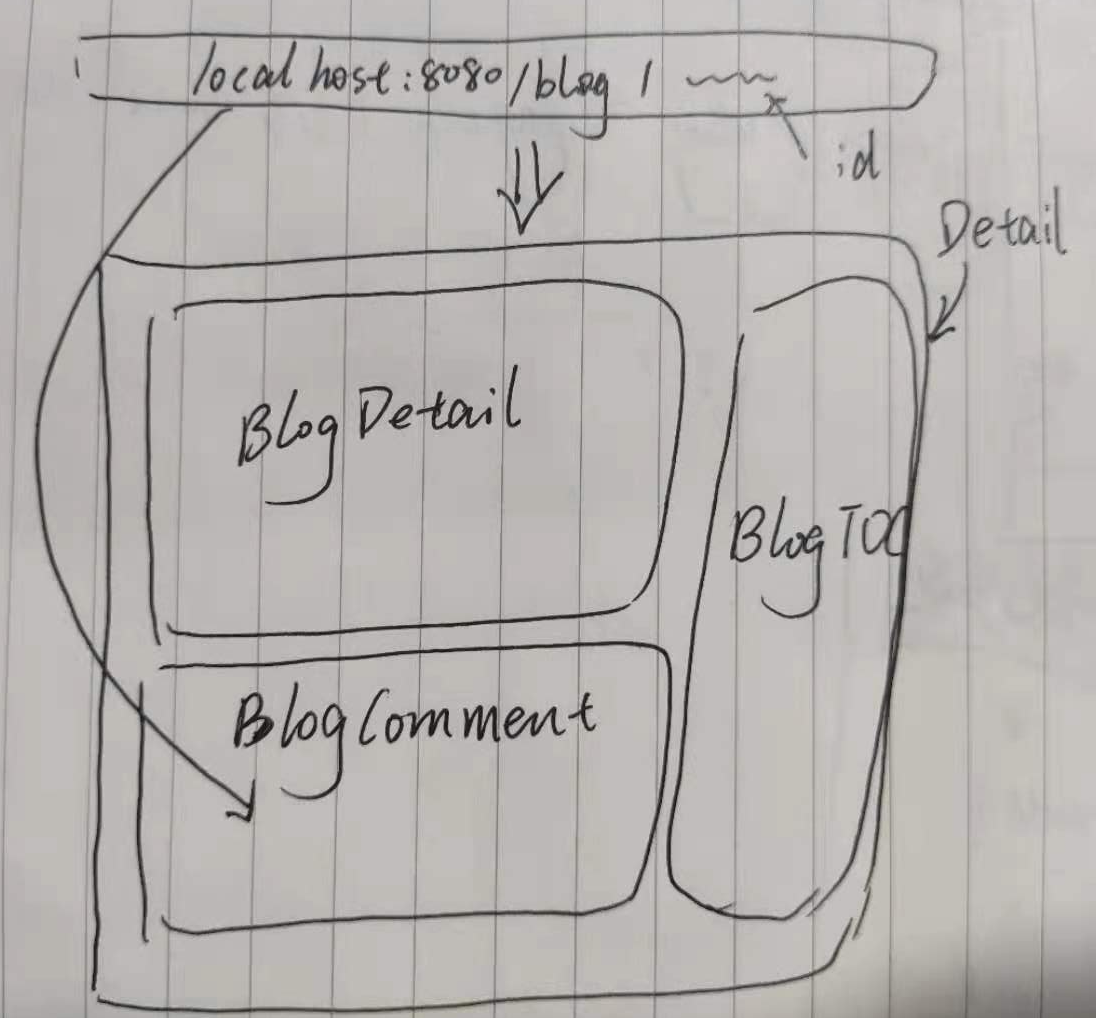 localhost:8080/blog/
:id
Detail
BlogDetail
BlogTOC
BlogComment